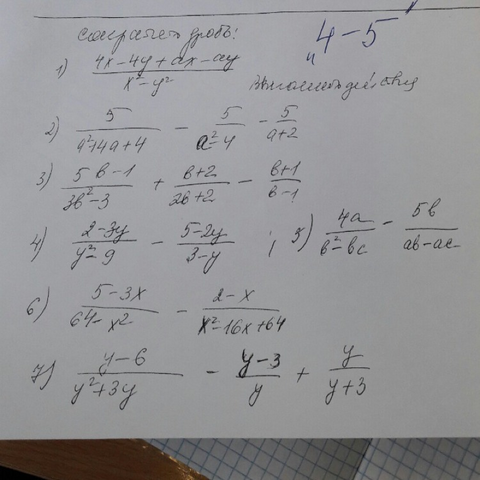 сократить дробь: "4-5"
1) (4x-4y+ax-ay)/(x²-y²)
Выполнить действия
2) 5/(a²+4a+4) - 5/(a²-4) - 5/(a+2)
3) (5b-1)/(3b²-3) + (b+2)/(2b+2) - (b+1)/(b-1)
4) (2-3y)/(y²-9) - (5-2y)/(3-y) ; 5) 4a/(b²-bc) - 5b/(ab-ac)
6) (5-3x)/(64-x²) - (2-x)/(x²-16x+64)
7) (y-6)/(y²+3y) - (y-3)/y + y/(y+3)